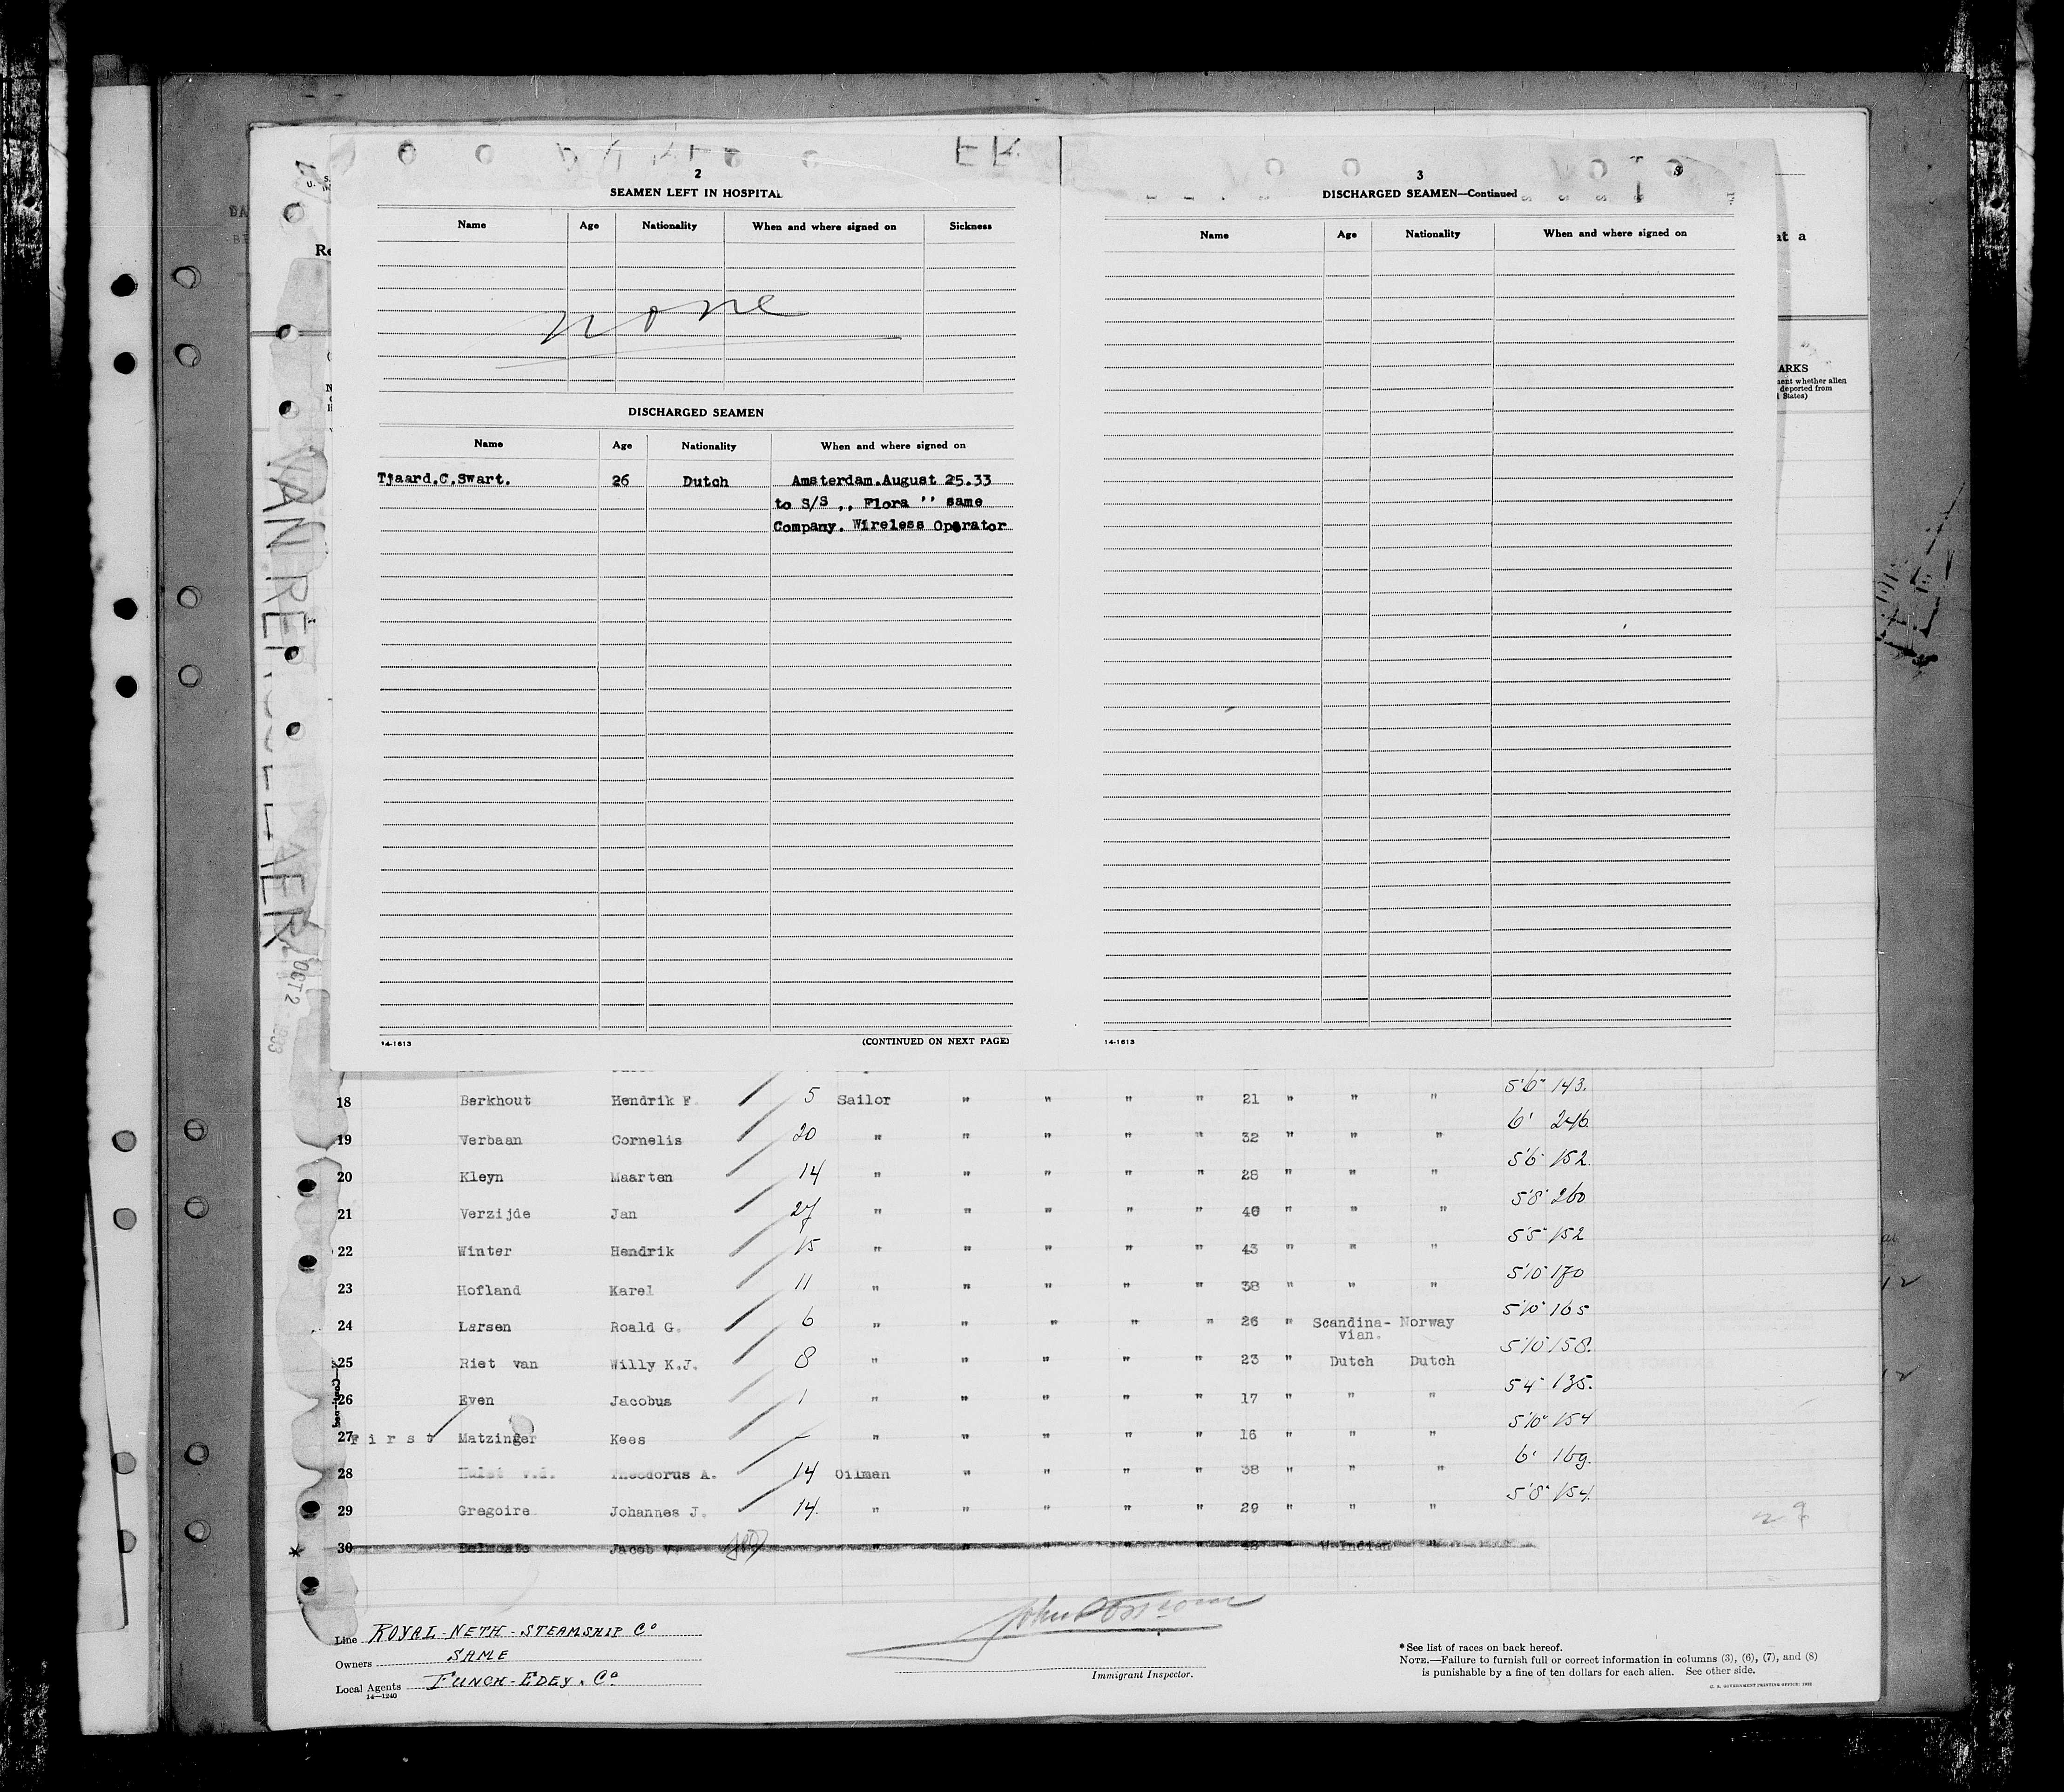 2
SEAMEN LEFT IN HOSPITAL
Name Age Nationality When and where signed on Sickness
none
DISCHARGED SEAMEN
Name Age Nationality When and where signed on
Tjaard.C.Swart. 26 Dutch Amsterdam.August 25.33
to S/S ,, Flora '' same
Company. Wireless Operator
14-1613 (CONTINUED ON NEXT PAGE)
3
DISCHARGED SEAMEN—Continued
Name Age Nationality When and where signed on
14-1613
at a
ARKS
ment whether alien
deported from
States)
OCT 2
18 Berkhout Hendrik F. 5 Sailor " " " " 21 " " " 5'6" 143.
19 Verbaan Cornelis 20 " " " " " 32 " " " 6' 246
20 Kleyn Maarten 14 " " " " " 28 " " " 5'6" 152.
21 Verzijde Jan 27 " " " " " 40 " " " 5'8" 260
22 Winter Hendrik 15 " " " " " 43 " " " 5'5" 152
23 Hofland Karel 11 " " " " " 38 " " " 5'10" 170
24 Larsen Roald G. 6 " " " " " 26 " Scandina- Norway 5'10" 165
vian.
25 Riet van Willy K.J. 8 " " " " " 23 " Dutch Dutch 5'10" 158.
26 Even Jacobus 1 " " " " " 17 " " " 5'4" 135.
27 First Matzinger Kees - " " " " " 16 " " " 5'10" 154
28 Theodorus A. 14 Oilman " " " " 38 " " " 6' 169.
29 Gregoire Johannes J. 14. " " " " " 29 " " " 5'8" 154.
30 Jacob V. " " " " " " W.Indian "
Line ROYAL-NETH-STEAMSHIP Co
Owners SAME
Local Agents FUNCH-EDEY. Co
14—1240
Immigrant Inspector.
*See list of races on back hereof.
NOTE.—Failure to furnish full or correct information in columns (3), (6), (7), and (8)
is punishable by a fine of ten dollars for each alien. See other side.
U. S. GOVERNMENT PRINTING OFFICE: 1932